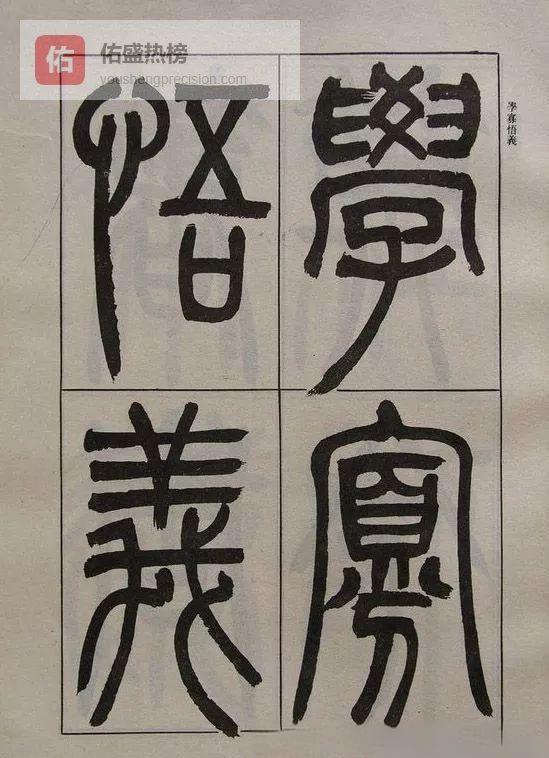 佑
佑盛热榜
youshengprecision.com
學寡
悟義
學寡悟義